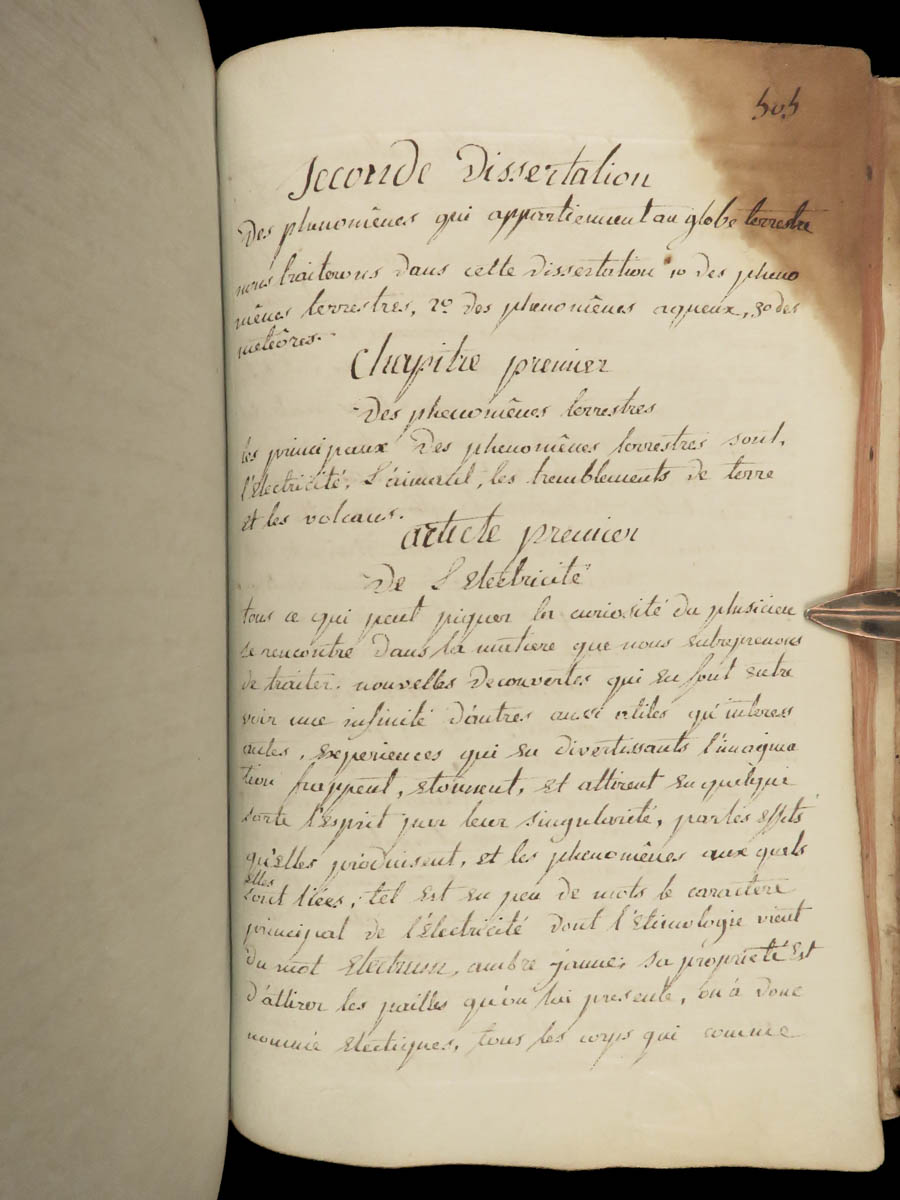 505
Seconde Dissertation
Des phenomênes qui appartiennent au globe terrestre
nous traiterons dans cette dissertation 1o des pheno
mênes terrestres, 2o des phenomênes aqueux, 3o des
meteôres.
Chapitre premier
Des phenomênes terrestres
les principaux Des phenomênes terrestres sont,
l'Electricité, L'aimant, les tremblements de terre
et les volcans.
article premier
De L'Electricité
tous ce qui peut piquer la curiosité du phisicien
se rencontre dans la matiere que nous entreprenons
de traiter. nouvelles Decouvertes qui en font entre
voir une infinité d'autres aussi utiles qu'interess
antes, Experiences qui en divertissants l'imagina
tion frappent, etonnent, et attirent en quelque
sorte l'Esprit par leur singularité, par les effets
qu'elles produisent, et les phenomênes aux quels
elles
sont liées, tel est en peu de mots le caractere
principal de l'électricité dont l'etimologie vient
du mot Electrum, ambre-jaune; sa proprieté Est
d'attirer les pailles qu'on lui presente, on à donc
nommé electriques, tous les corps qui comme